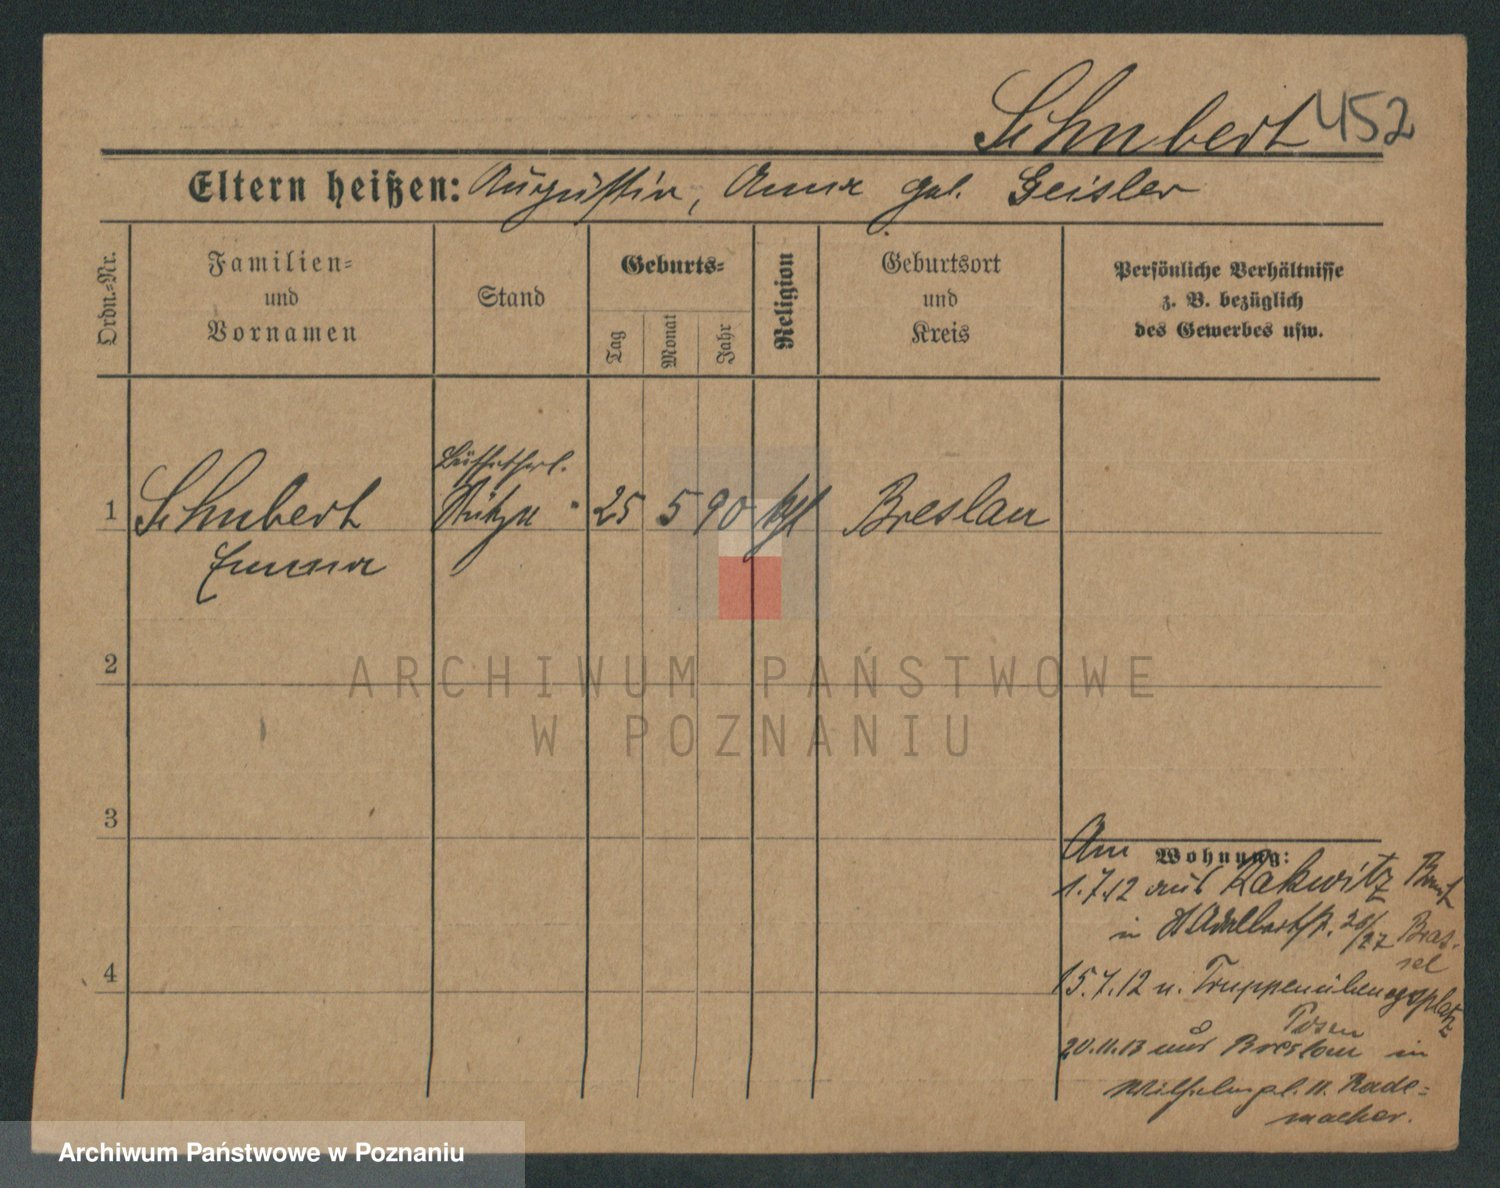 Schubert 452
Eltern heißen: Augustin, Anna geb. Geisler
Ordn.-Nr.
Familien-
und
Vornamen
Stand
Geburts-
Tag
Monat
Jahr
Religion
Geburtsort
und
Kreis
Persönliche Verhältnisse
z. B. bezüglich
des Gewerbes usw.
1 Schubert Stütze 25 5 90 kath Breslau
Emma
2
ARCHIWUM PAŃSTWOWE
W POZNANIU
3
Wohnung:
Am
1.7.12 aus Rakwitz
in St Adalbertstr. 26/27 Bras-
sel
4
15.7.12 n. Truppenübungsplatz
Posen
20.11.13 aus Breslau in
Wilhelmspl. 11. Rade-
macher.
Archiwum Państwowe w Poznaniu